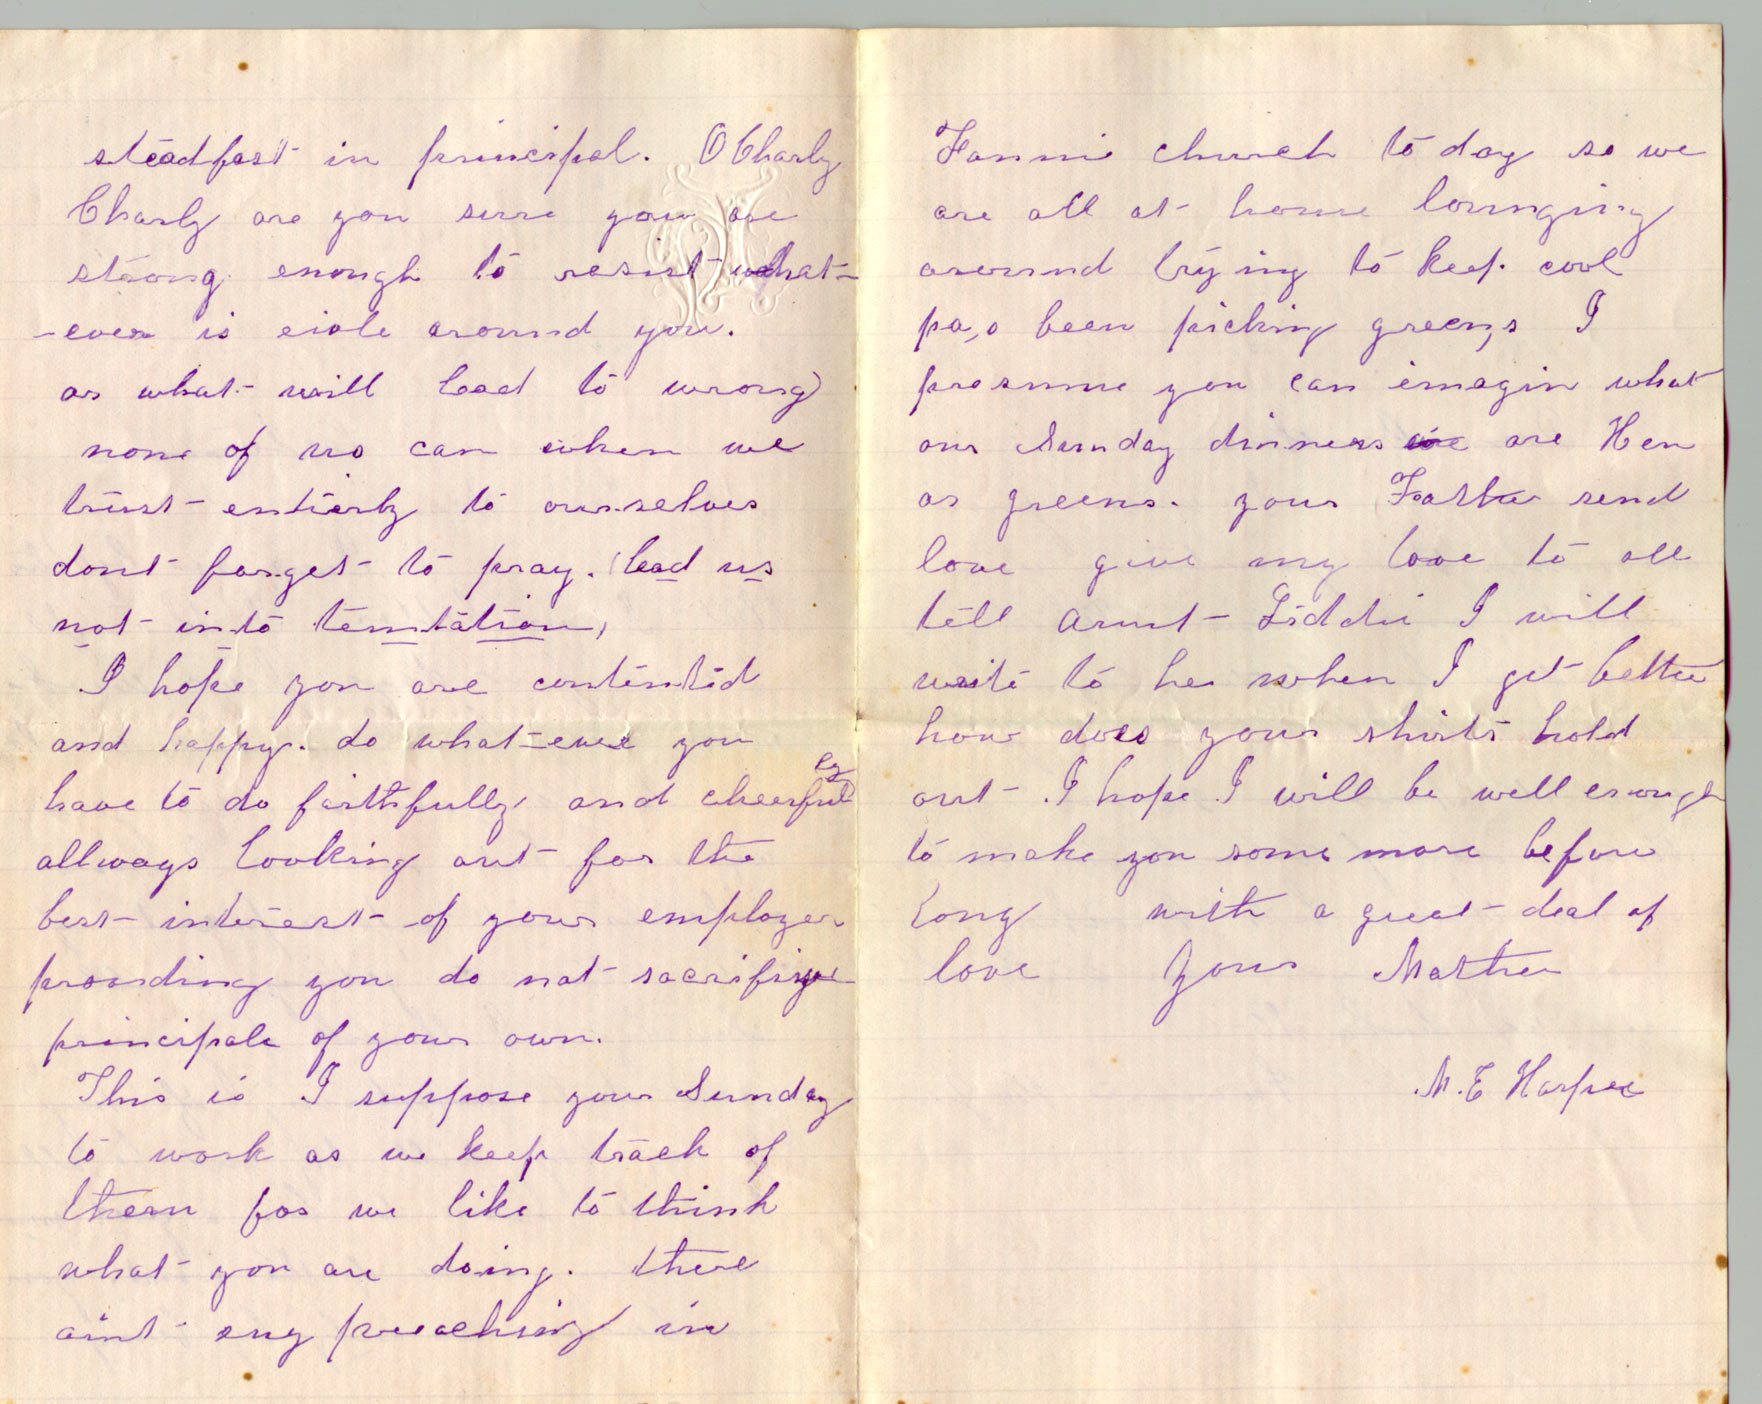 steadfast in principal. O Charly
Charly are you surre you are
strong enough to resist what-
-ever is viole around you.
or what will lead to wrong
none of us can when we
trust entierly to ourselves
dont forget to pray. (lead us
not into temtation,
I hope you are contented
and happy. do what-ever you
have to do faithfully and cheerfully
allways looking out for the
best interest of your employer
prooviding you do not sacrifise
principale of your own.
This is I suppose your Sunday
to work as we keep track of
them for we like to think
what you are doing. there
aint any preaching in
Fannie church to day so we
are all at home lounging
arorund trying to keep cool
pa,s been picking green,s I
prosume you can imagin what
our Sunday dinners are Hen
or greens. your Father send
love give my love to all
tell Aunt Liddie I will
write to her when I get better
how does your shirts hold
out. I hope I will be well enough
to make you some more before
long with a great deal of
love Your Mother
M. E Harper